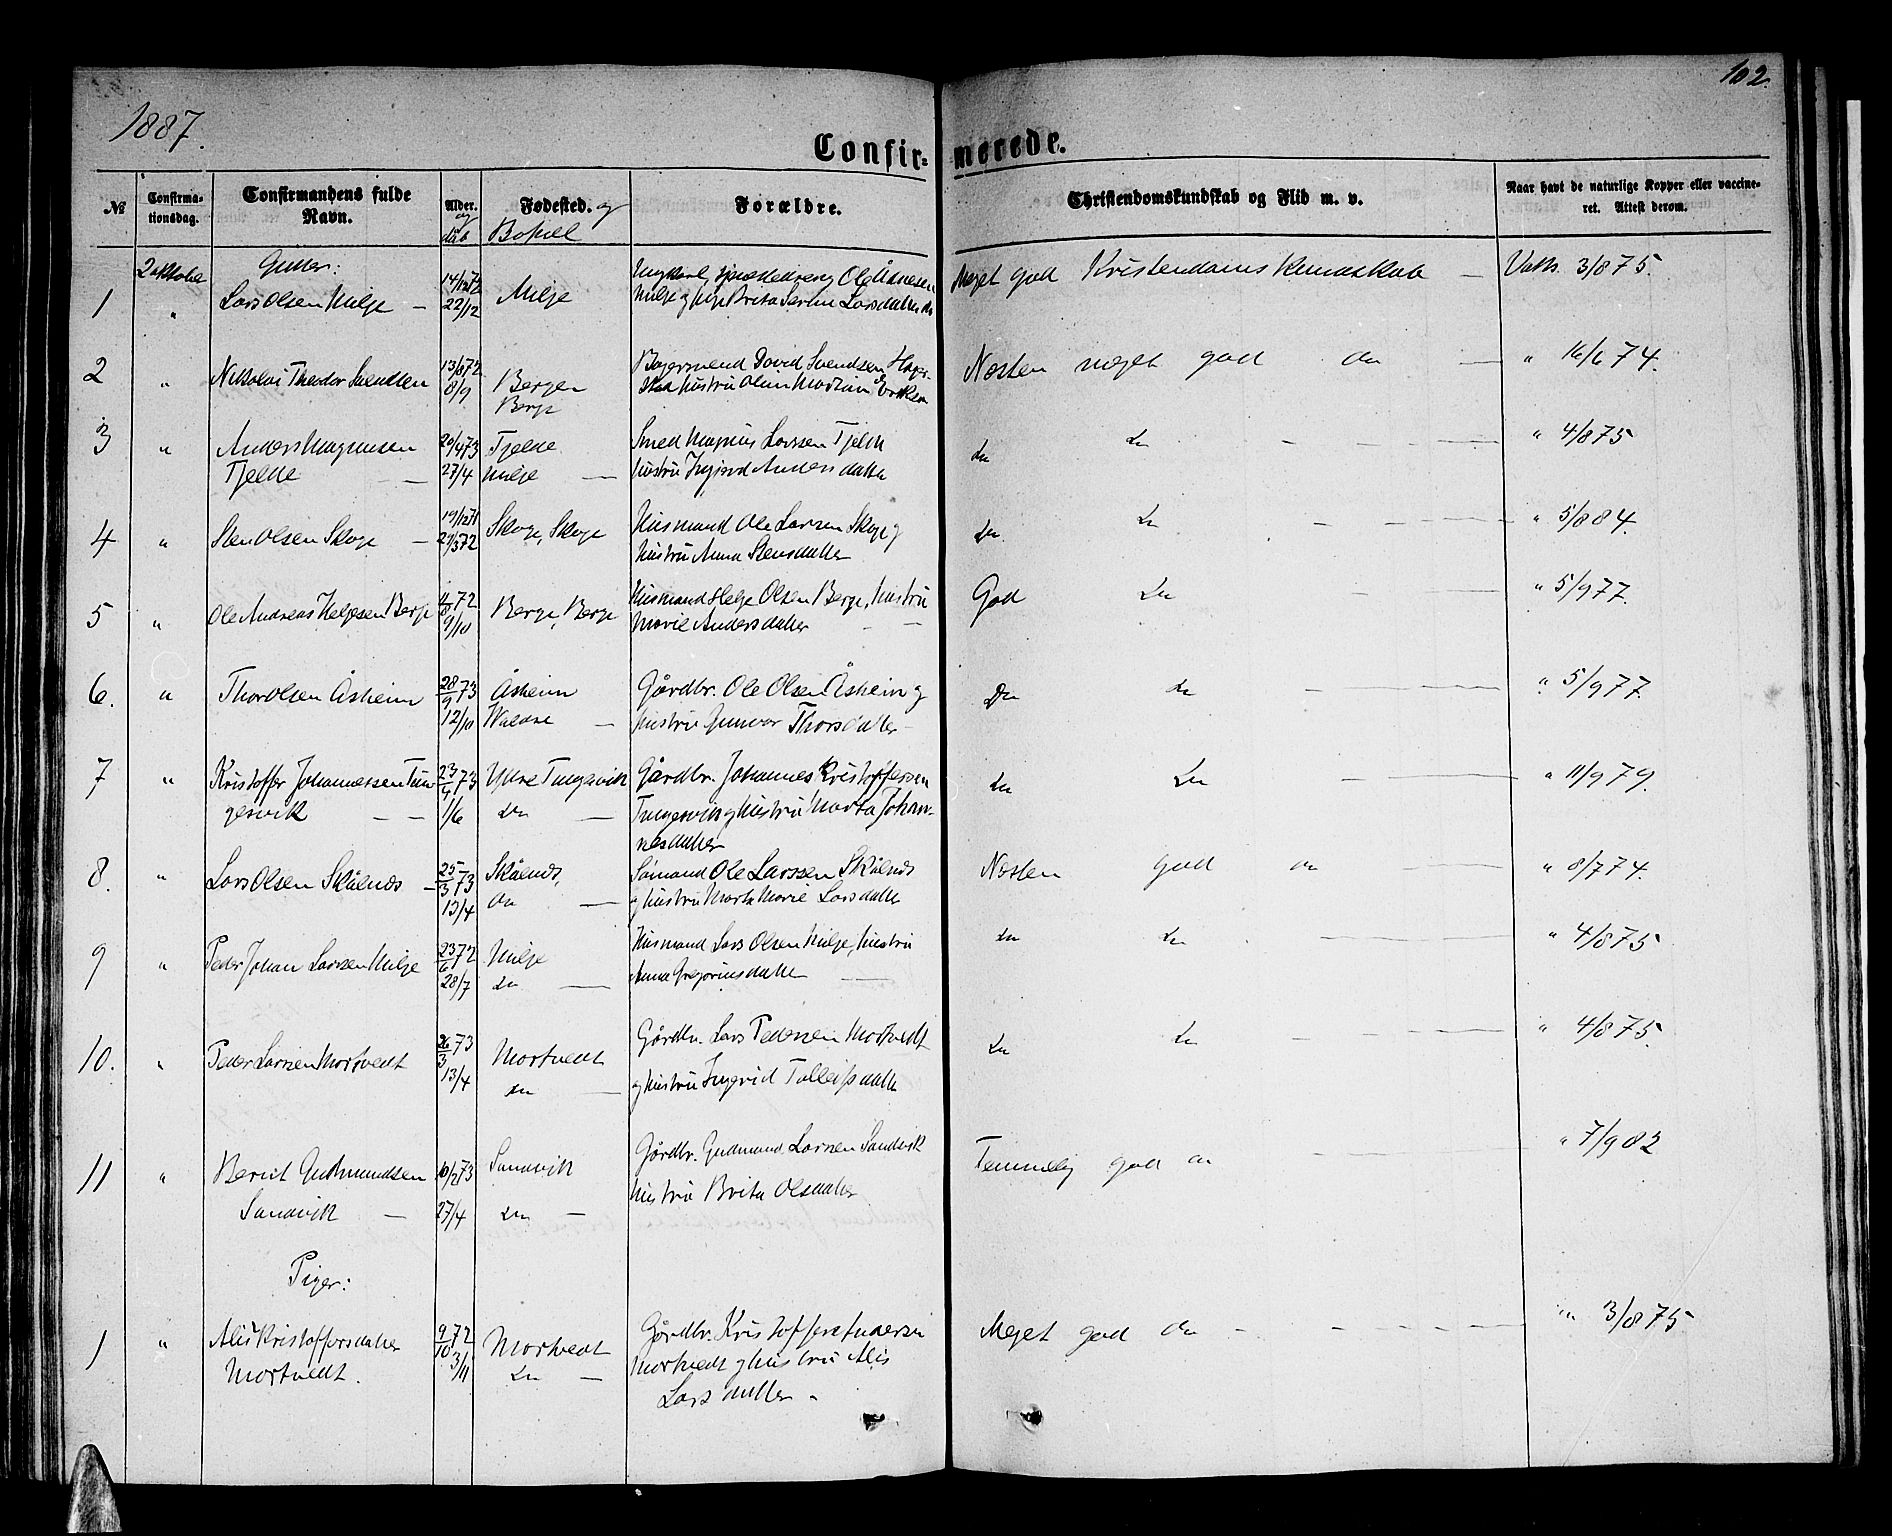 102.
1887.
Confir- merede.
№
Confirma-
tionsdag.
Confirmandens fulde
Navn.
Alder.
og
dåb
Fødested. og
Bopæl
Forældre.
Christendomskundskab og Flid m. v.
Naar havt de naturlige Kopper eller vaccine-
ret. Attest derom.
2 oktober
Gutter:
1 " Lars Olsen Milje — 14/12 72 22/12 Milje
Milje Brita Larsdatter do
Meget god Kristendomskundskab — Vatr. 3/8 75.
2 " Nikolai Theodor Svendsen 13/8 72 8/9 Bergen
Berge
David Svendsen
hustru
Næsten meget god do — " 16/6 74.
3 " Anders Magnusen
Tjelde — 20/4 73 27/4 Tjelde
Milje —
Smed Magnus Larssen Tjelde
hustru Ingjerd Andersdatter
do do — " 4/8 75
4 " Sten Olsen Skoge — 19/12 71 29/3 72 Skoge, Skoge
Husmand Ole Larsen Skoge og
hustru Anna Stensdatter
do do — " 5/8 84.
5 " Ole Andreas Helgesen Berge 11/8 72 9/10 Berge, Berge
Husmand Helge Olsen Berge, hustru
Marie Andersdatter — —
God do — " 5/9 77.
6. " Thor Olsen Åsheim 28/9 73 12/10 Åsheim
—
Gårdbr. Ole Olsen Åsheim og
hustru Gunvor Thorsdatter —
Do do — " 5/9 77.
7 " Kristoffer Johannessen Tun-
gesvik — — 23/4 73 1/6 Ydre Tungesvik
do —
Gårdbr. Johannes Kristoffersen
Tungesvik og hustru Marta Johan-
nesdatter
do do — " 11/9 79.
8. " Lars Olsen Skålnes — 25/3 73 13/4 Skålnes,
do —
Sømand Ole Larssen Skålnes
og hustru Marta Marie Larsdatter
Næsten god do — " 8/7 74.
9 " Peder Johan Larssen Milje 23/6 72 28/7 Milje
do —
Husmand Lars Olsen Milje, hustru
Anna Gregoriusdatter —
do do — " 4/8 75
10. " Peder Larssen Mortvedt 26/3 73 13/4 Mortvedt
do —
Gårdbr. Lars Pedersen Mortvedt
og hustru Ingrid Tolleifsdatter
do do — " 4/8 75.
11 " Berut Gudmundsen
Sandvik — 10/2 73 27/4 Sandvik
do —
Gårdbr. Gudmund Larssen Sandvik
hustru Brita Olsdatter
Temmelig god do — " 7/9 82
Piger:
1 " Alis Kristoffersdatter
Mortvedt. 9/10 72 3/11 Mortvedt
do —
Gårdbr. Kristoffer Andersen
Mortvedt og hustru Alis
Larsdatter —
Meget god do — " 3/8 75